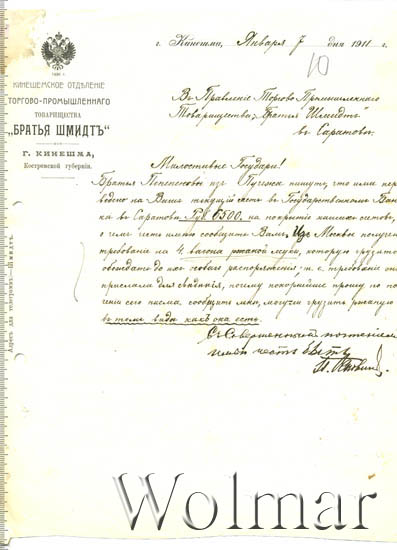 г. Кинешма, Января 7 дня 1911 г.
10
1896 г.
КИНЕШЕМСКОЕ ОТДѢЛЕНІЕ
ТОРГОВО-ПРОМЫШЛЕННАГО
ТОВАРИЩЕСТВА
„БРАТЬЯ ШМИДТЪ“
Г. КИНЕШМА,
Костромской губерніи.
Адресъ для телеграммъ—Шмидтъ.
Въ Правленіе Торгово Промышленнаго
Товарищества „Братья Шмидтъ“
въ Саратовѣ.
Милостивые Государи!
Братья изъ Пучежа пишутъ, что ими пере
ведено на Вашъ текущій счетъ въ Государственномъ Бан
ка въ Саратовѣ Руб. 6500. на покрытіе нашихъ счетовъ, о
чемъ честь имѣю сообщить Вамъ. Изъ Москвы получено
требованіе на 4 вагона ржаной муки, которую грузить
до ихъ распоряженія, т. е. требованіе они
прислали для свѣдѣнія, почему покорнѣйше прошу по полу
ченіи сего письма, сообщить мнѣ, могутъ грузить ржаную
въ томъ видѣ какъ она есть.
Съ совершеннымъ почтеніемъ
имѣю честь быть
Wolmar